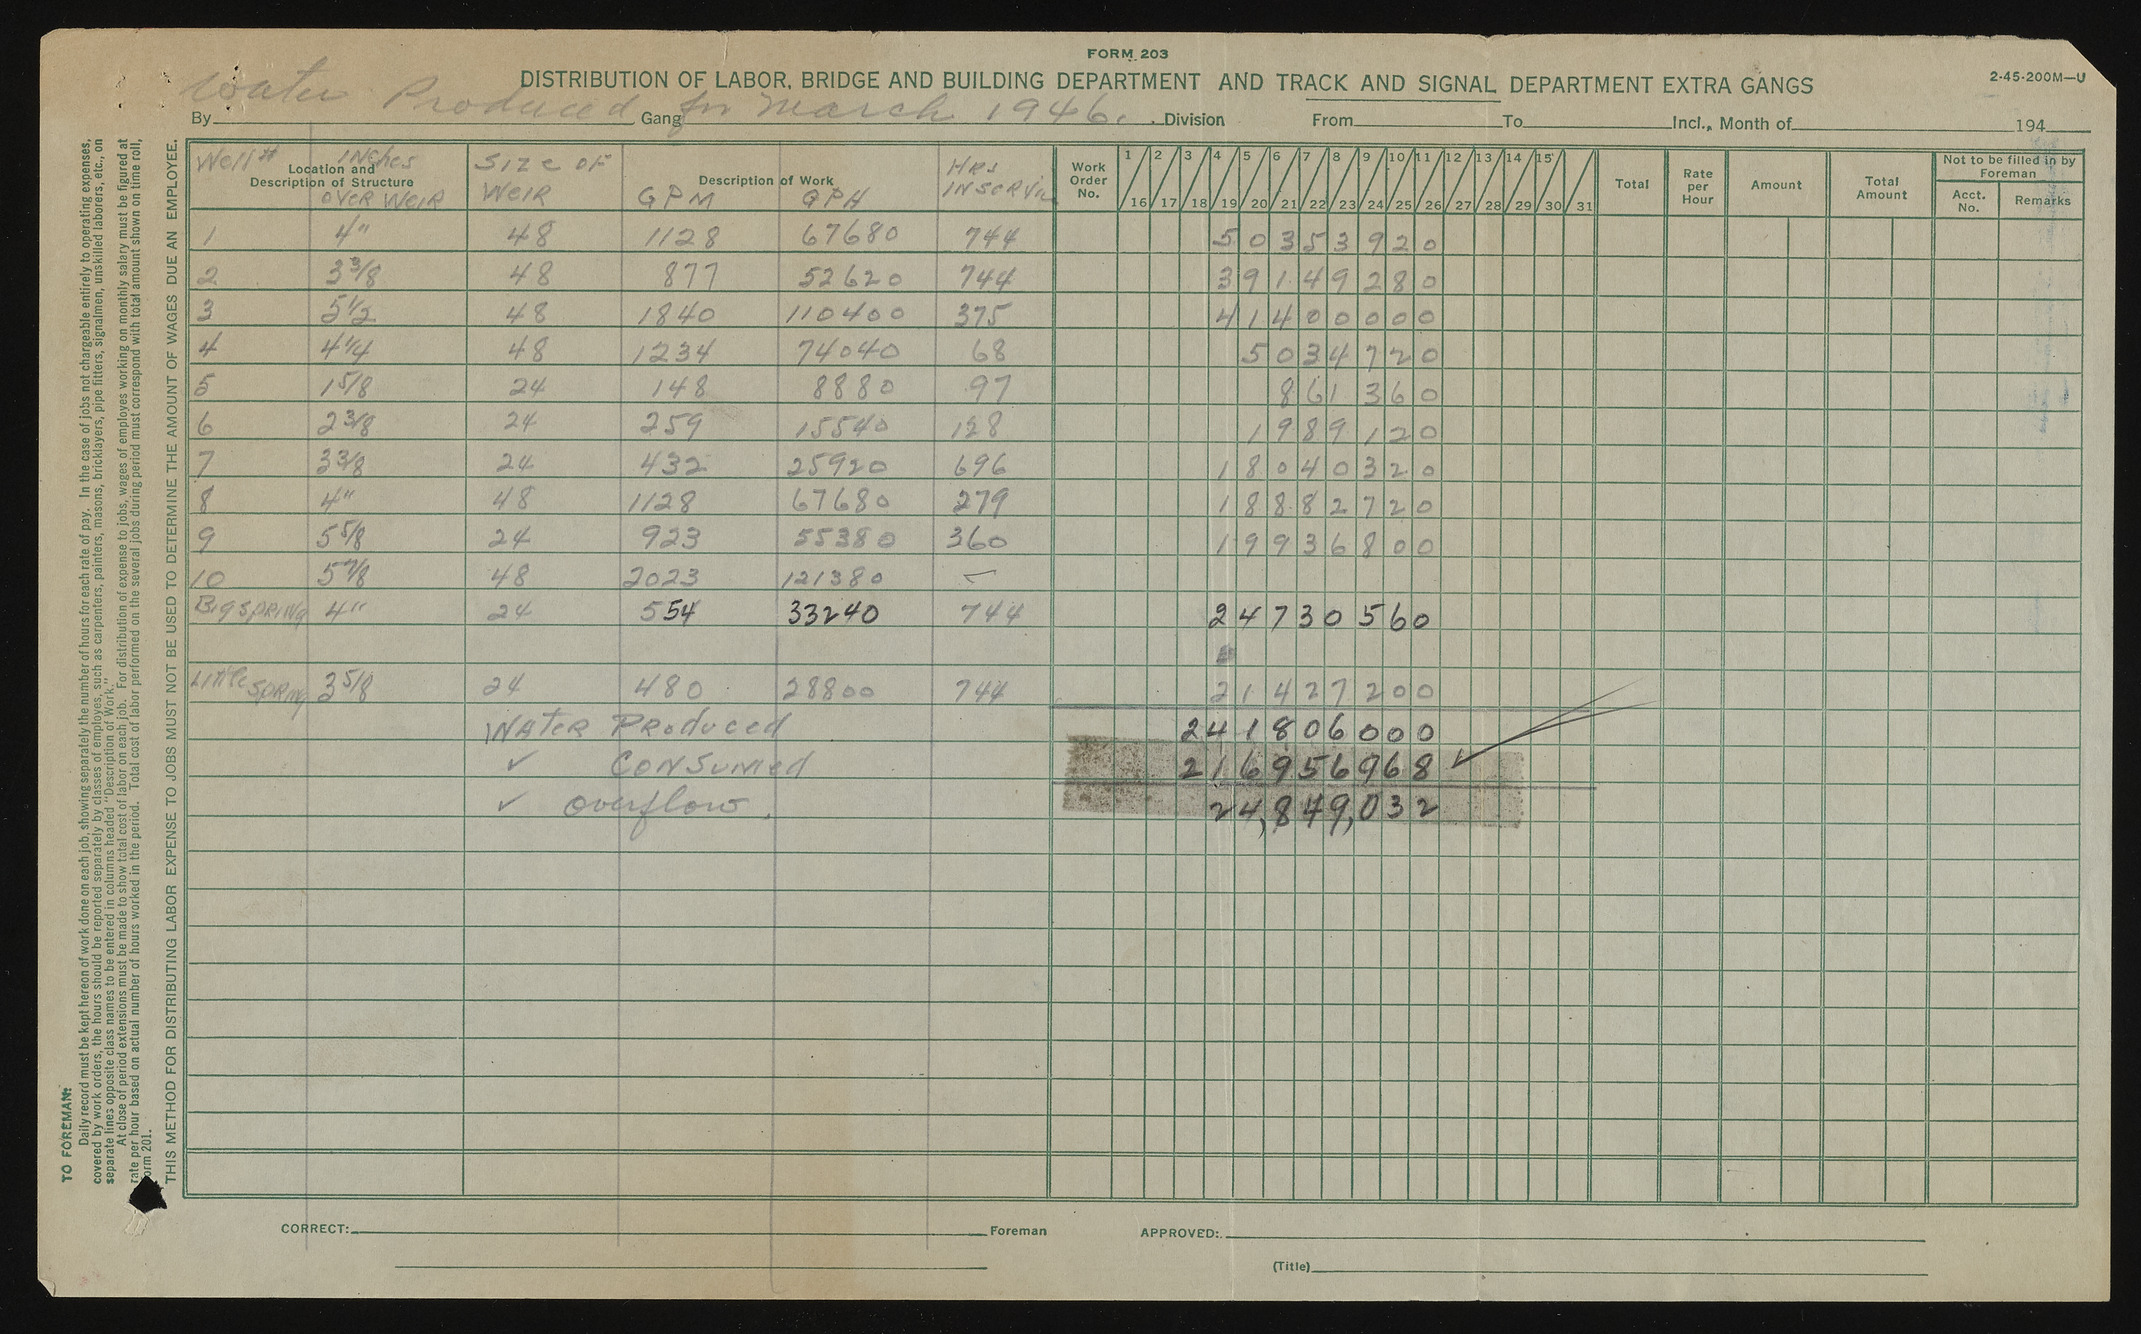 FORM 203
2-45-200M—U
DISTRIBUTION OF LABOR, BRIDGE AND BUILDING DEPARTMENT AND TRACK AND SIGNAL DEPARTMENT EXTRA GANGS
Water Produced for March 1946.
By Gang Division From To Incl., Month of 194
Well # Inches over Weir Size of Weir GPM GPH Hrs in Service
Location and Description of Structure Description of Work Work Order No. 1 2 3 4 5 6 7 8 9 10 11 12 13 14 15 Total Rate per Hour Amount Total Amount Not to be filled in by Foreman
16 17 18 19 20 21 22 23 24 25 26 27 28 29 30 31 Acct. No. Remarks
1 4" 48 1128 67680 744 50353920
2 3 3/8 48 877 52620 744 39149280
3 5 1/2 48 1840 110400 375 41400000
4 4 1/4 48 1234 74040 68 5034720
5 1 5/8 24 148 8880 97 861360
6 2 3/8 24 259 15540 128 1989120
7 3 3/8 24 432 25920 696 18040320
8 4" 48 1128 67680 279 18882720
9 5 5/8 24 923 55380 360 19936800
10 5 7/8 48 2023 121380 –
Big Spring 4" 24 554 33240 744 24730560
Little Spring 3 5/8 24 480 28800 744 21427200
Water Produced 241806000
✓ Consumed 216956968 ✓
✓ Overflow. 24,849,032
TO FOREMAN:
Daily record must be kept hereon of work done on each job, showing separately the number of hours for each rate of pay. In the case of jobs not chargeable entirely to operating expenses,
covered by work orders, the hours should be reported separately by classes of employes, such as carpenters, painters, masons, bricklayers, pipe fitters, signalmen, unskilled laborers, etc., on
separate lines opposite class names to be entered in columns headed "Description of Work."
At close of period extensions must be made to show total cost of labor on each job. For distribution of expense to jobs, wages of employes working on monthly salary must be figured at
rate per hour based on actual number of hours worked in the period. Total cost of labor performed on the several jobs during period must correspond with total amount shown on time roll,
orm 201.
THIS METHOD FOR DISTRIBUTING LABOR EXPENSE TO JOBS MUST NOT BE USED TO DETERMINE THE AMOUNT OF WAGES DUE AN EMPLOYEE.
CORRECT: Foreman APPROVED:
(Title)